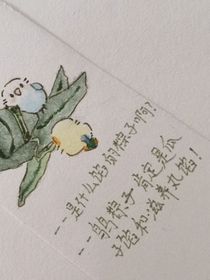 --是什么馅的粽子啊?
--鹉粽子肯定是瓜
子馅和滋养丸馅!